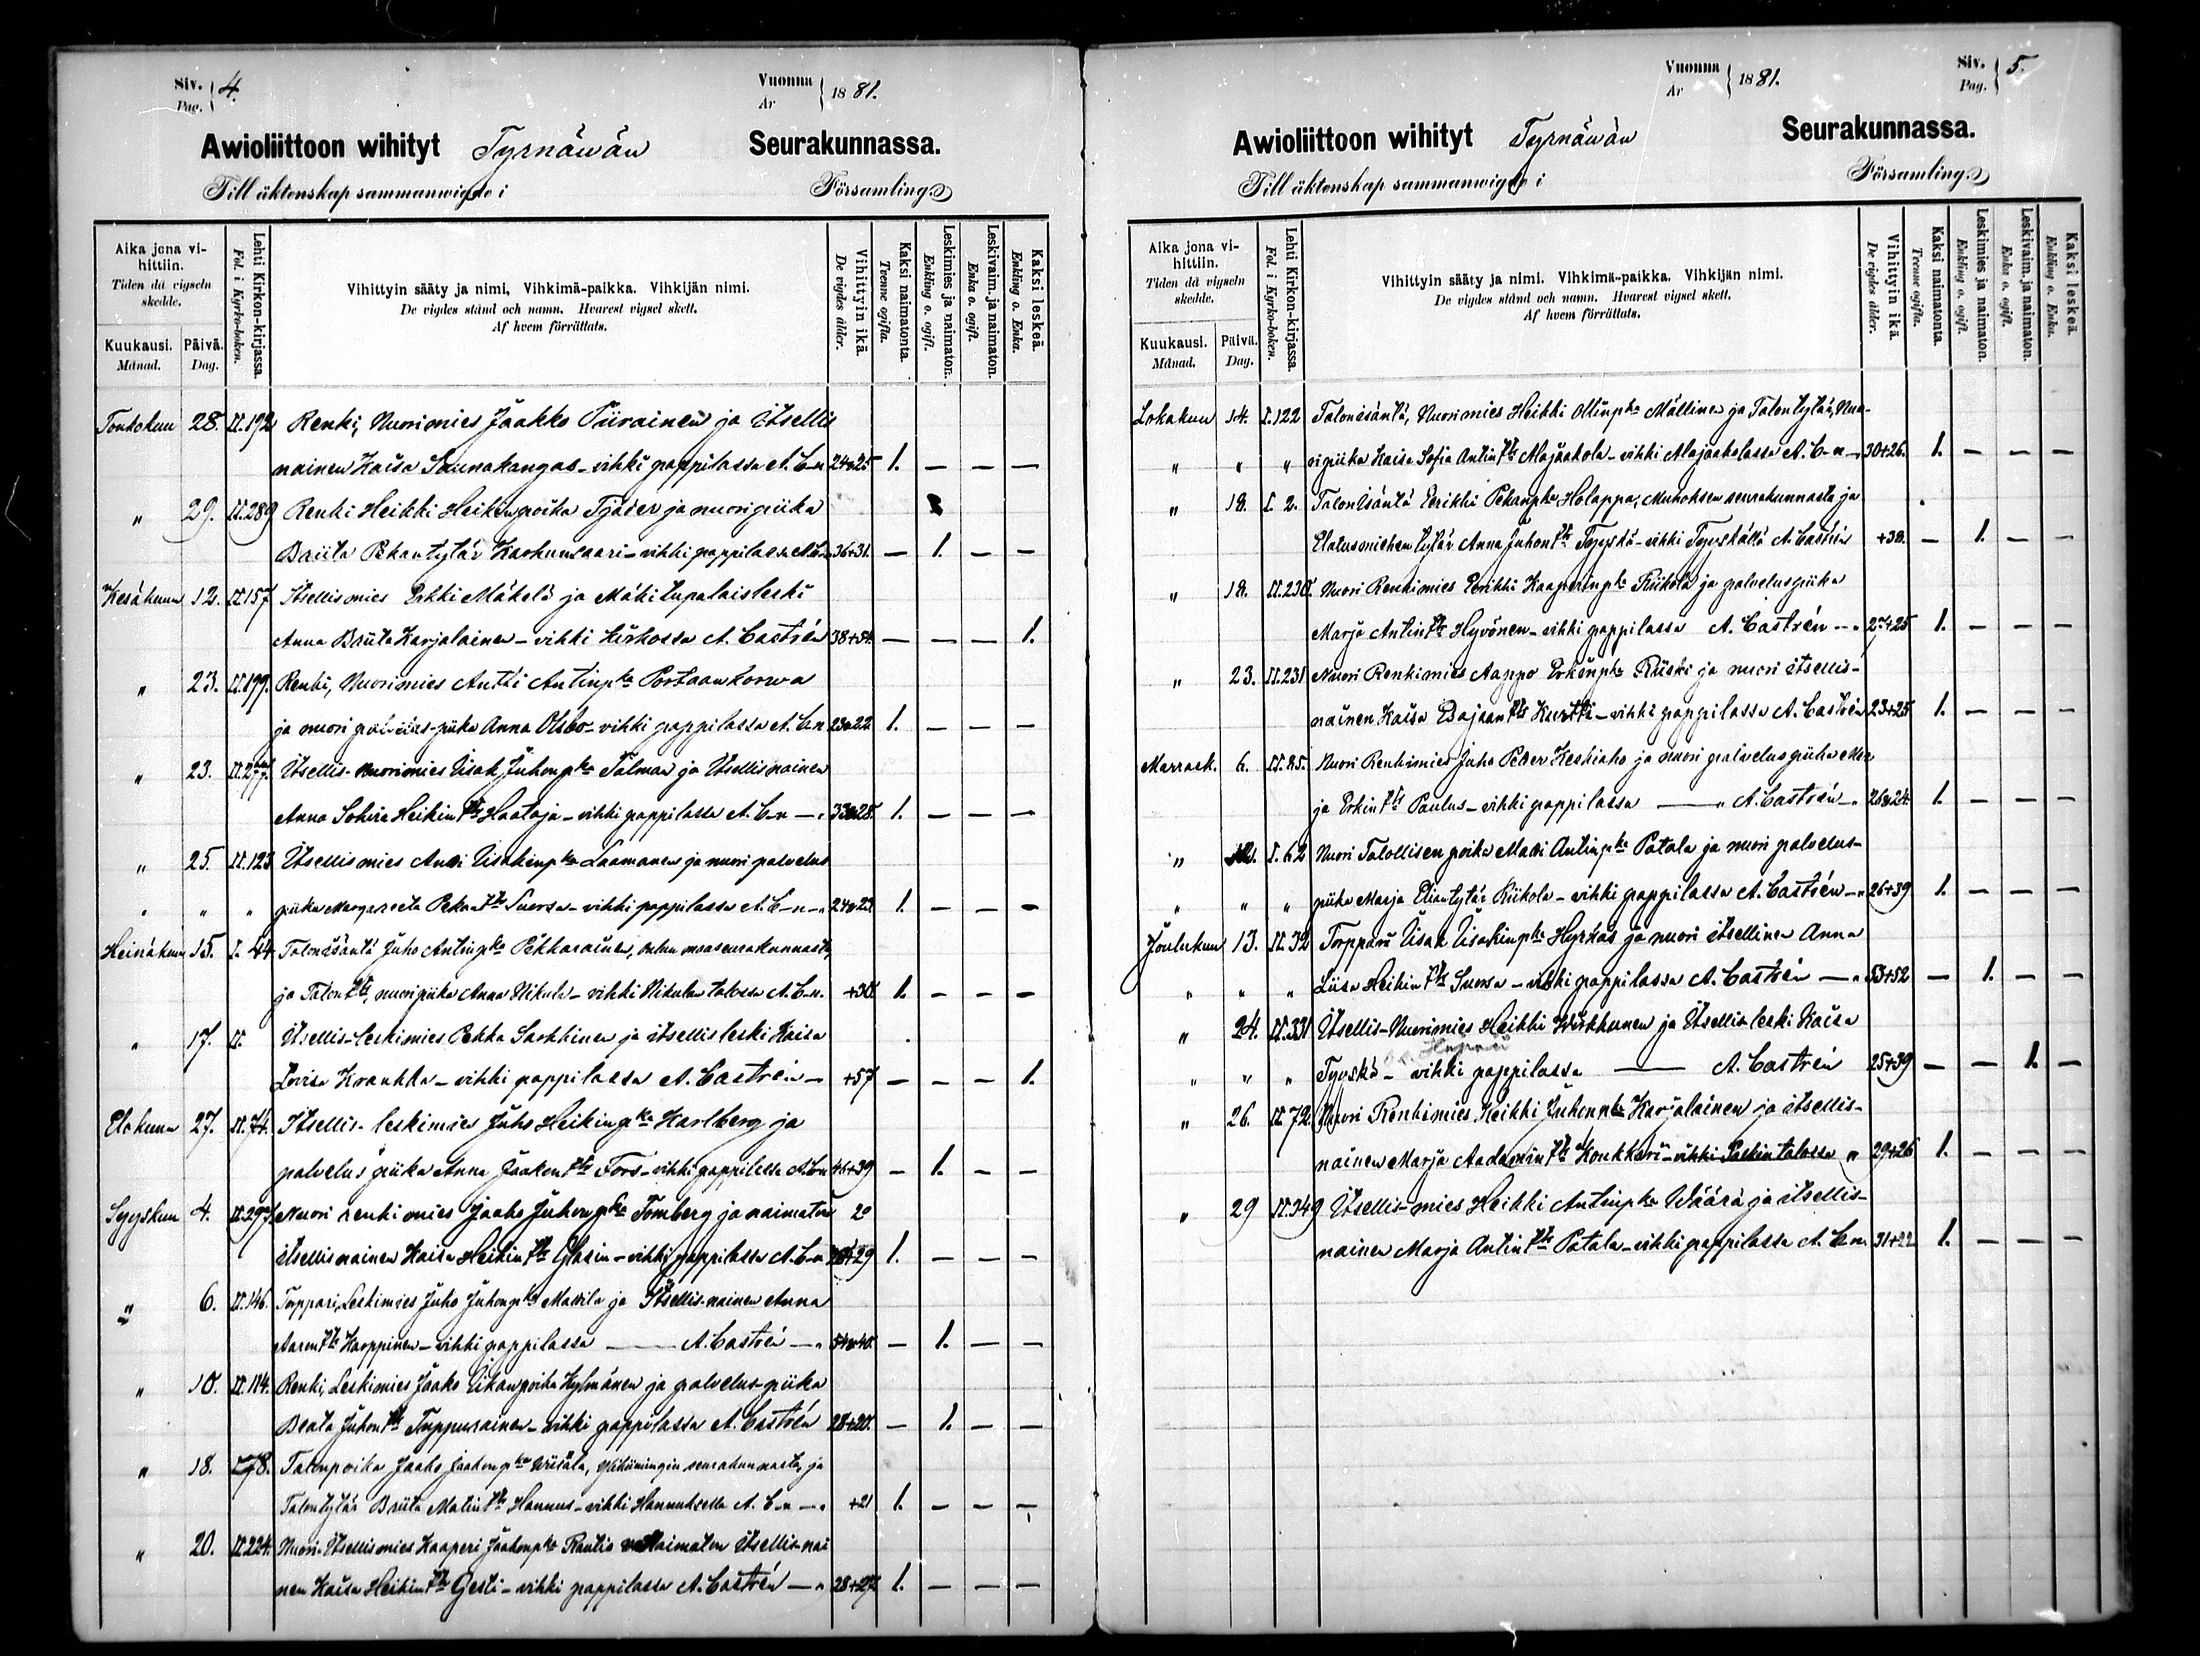 Siv. Pag. } 4.
Vuonna År } 1881.
Awioliittoon wihityt Tyrnäwän Seurakunnassa.
Till äktenskap sammanwigde i Församling.
Aika jona vihittiin.
Tiden då vigseln skedde.
Kuukausi. Månad.
Päivä. Dag.
Lehti Kirkon-kirjassa.
Fol. i Kyrko-boken.
Vihittyin sääty ja nimi, Vihkimä-paikka. Vihkijän nimi.
De vigdes stånd och namn. Hvarest vigsel skett.
Af hvem förrättats.
Vihittyin ikä. De vigdes ålder.
Kaksi naimatonta. Tvenne ogifta.
Leskimies ja naimaton. Enkling o. ogift.
Leskivaim. ja naimaton. Enka o. ogift.
Kaksi leskeä. Enkling o. Enka.
Toukokuu 28. II.192 Renki, Nuorimies Jaakko Piirainen ja Itsellis
nainen Kaisa Saunakangas - vihki pappilassa A. C-n 24+25 1. — — —
" 29. II.289 Renki Heikki Heikinpoika Tjäder ja nuoripiika
Briita Pekantytär Karhunsaari - vihki pappilassa A. C-n 36+31. — 1. — —
Kesäkuu 12. II.157 Itsellismies Erkki Mäkelä ja Mäkitupalaisleski
Anna Briita Karjalainen - vihki kirkossa A. Castrén 38+54. — — — 1.
" 23. II.199. Renki, Nuorimies Antti Antinpka Portaankorwa
ja nuori palvelus-piika Anna Olsbo - vihki pappilassa A. C-n 23+22 1. — — —
" 23. II.277. Itsellis-Nuorimies Iisak Juhonpka Talman ja Itsellisnainen
Anna Sohvia Heikin tr Haataja - vihki pappilassa A. C-n — " 33+28. 1. — — —
" 25. II.123 Itsellismies Antti Iisakinpka Laamanen ja nuori palvelus
" " " piika Margareeta Pekan tr Suorsa - vihki pappilassa A. C-n - " 24+23 1. — — —
Heinäkuu 15. I. 44 Talonisäntä Juho Antinpka Pekkarainen, Oulun maaseurakunnasta,
ja Talon tr, nuoripiika Anna Nikula - vihki Nikulan talossa A. C-n. +30. 1. — — —
" 17. II. Itsellis-leskimies Pekka Sarkkinen ja itsellisleski Kaisa
Lovisa Kraukka - vihki pappilassa A. Castrén - +57 — — — 1.
Elokuu 27. II.74. Itsellis-leskimies Juho Heikinpka Karlberg ja
palvelus piika Anna Jaakon tr Fors - vihki pappilassa A. C-n 46+39 — 1. — —
Syyskuu 4. II.297. Nuori renkimies Jaako Juhonpka Tomberg ja naimaton
itsellisnainen Kaisa Heikin tr Glasin - vihki pappilassa A. C-n +29 1. — — —
" 6. II.146. Torppari, Leskimies Juho Juhonpka Mattila ja Itsellis-nainen Anna
Aaron tr Karppinen - vihki pappilassa — A. Castrén — " 54+40. — 1. — —
" 10. II.114. Renki, Leskimies Jaako Iikanpoika Hylmänen ja palvelus-piika
Beata Juhon tr Tuppurainen - vihki pappilassa A. Castrén 28+20. — 1. — —
" 18. I.78. Talonpoika Jaako Jaakonpka seurakunnasta, ja
Talontytär Briita Matin tr Hannus - vihki Hannuksella A. C-n - " +21 1. — — —
" 20. II.224. Nuori-Itsellismies Kaaperi Jaakonpka Rautio naimaton itsellis-nai
nen Kaisa Heikin tr Gesti - vihki pappilassa A. Castrén — " 28+27. 1. — — —
Siv. Pag. } 5.
Vuonna År } 1881.
Awioliittoon wihityt Tyrnäwän Seurakunnassa.
Till äktenskap sammanwigde i Församling.
Aika jona vihittiin.
Tiden då vigseln skedde.
Kuukausi. Månad.
Päivä. Dag.
Lehti Kirkon-kirjassa.
Fol. i Kyrko-boken.
Vihittyin sääty ja nimi. Vihkimä-paikka. Vihkijän nimi.
De vigdes stånd och namn. Hvarest vigsel skett.
Af hvem förrättats.
Vihittyin ikä. De vigdes ålder.
Kaksi naimatonta. Tvenne ogifta.
Leskimies ja naimaton. Enkling o. ogift.
Leskivaim. ja naimaton. Enka o. ogift.
Kaksi leskeä. Enkling o. Enka.
Lokakuu 14. I.122 Talonisäntä, Nuorimies Heikki Ollinpka Mällinen ja Talontytär, Nuo-
" " " ripiika Kaisa Sofia Antin tr Alajaakola - vihki Alajaakolassa A. C-n - 30+26. 1. — — —
" 18. I. 2. Talonisäntä Eerikki Pekanpka Holappa, Muhoksen seurakunnasta ja
Elatusmiehen tytär Anna Juhon tr Tyyskä - vihki Tyyskällä A. Castrén +38. — 1. — —
" 18. II.230. Nuori Renkimies Eerikki Kaaperinpka Riikola ja palveluspiika
Marja Antin tr Hyvönen - vihki pappilassa A. Castrén - " +25 1. — — —
" 23. II.231 Nuori Renkimies Aappo Erkinpka Riiski ja nuori itsellis-
nainen Kaisa Esajaan tr Kurtti - vihki pappilassa A. Castrén 23+25 1. — — —
Marrask. 6. II.85. Nuori Renkimies Juho Peder Keskiaho ja nuori palveluspiika Mar
ja Erkin tr Paulus - vihki pappilassa — " A. Castrén - " 26+24. 1. — — —
" I.62 Nuori Talollisen poika Matti Antinpka Patala ja nuori palvelus-
" " " piika Marja Eliantytär Riikola - vihki pappilassa A. Castrén - " 26+39 1. — — —
Joulukuu 13. II.32 Torppari Iisak Iisakinpka Hyrkäs ja nuori itsellinen Anna
" " " Liisa Heikin tr Suorsa - vihki pappilassa A. Castrén — " 53+52 — 1. — —
" 24. II.331 Itsellis-Nuorimies Heikki Wirkkunen ja Itsellis leski Kaisa
" " " Tyyskä - vihki pappilassa — A. Castrén 25+39 — — 1. —
" 26. II.72. Nuori Renkimies Heikki Juhonpka Karjalainen ja itsellis-
nainen Marja Aadamin tr Koukkari - vihki talossa " 29+26 1. — — —
" 29 II.349 Itsellis-mies Heikki Antinpka Wäärä ja itsellis-
nainen Marja Antin tr Patala - vihki pappilassa A. C-n. 31+22 1. — — —